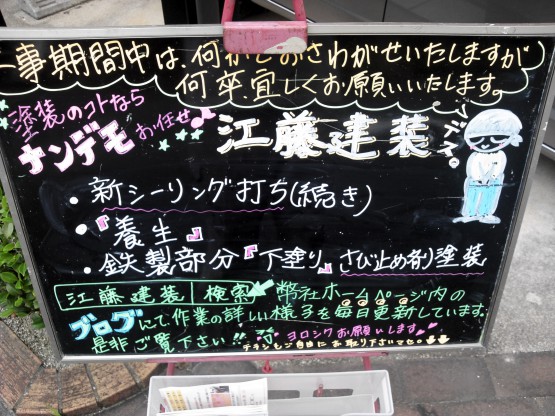 工事期間中は、何かとおさわがせいたしますが
何卒宜しくお願いいたします。
塗装のコトなら
ナンデモお任せ
江藤建装
・新シーリング打ち(続き)
・『養生』
・鉄製部分『下塗り』さび止め剤塗装
江藤建装 検索 弊社ホームページ内の
ブログにて、作業の詳しい様子を毎日更新しています。
是非ご覧下さい!! ヨロシクお願いします。
チラシもご自由にお取り下さいマセ。